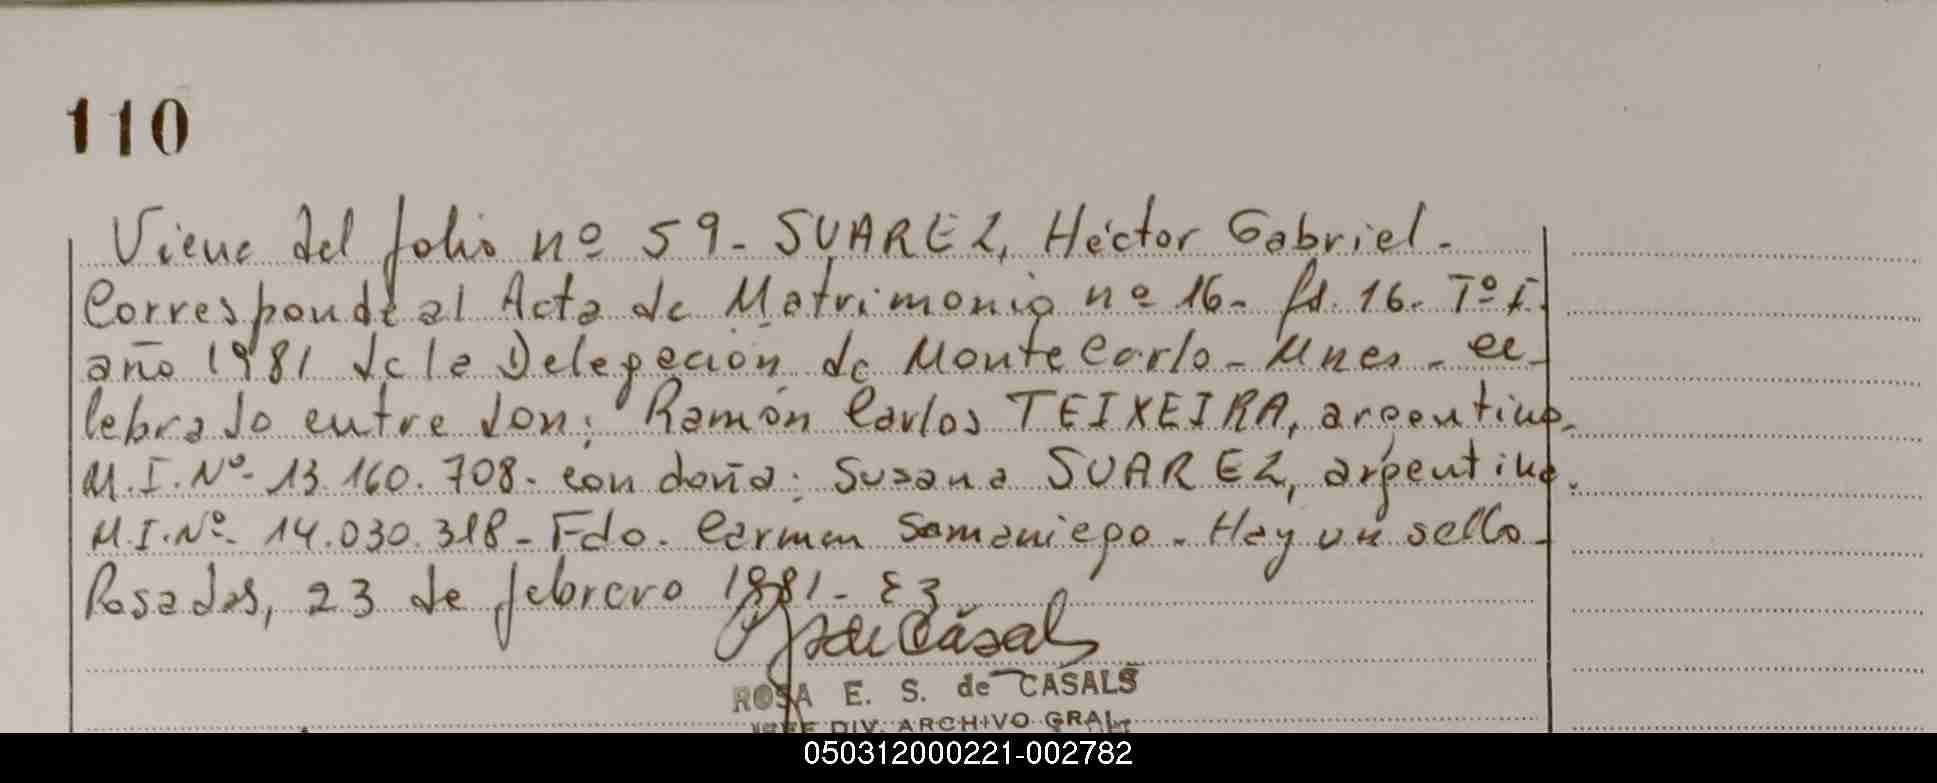 110
Viene del folio nº 59- SUAREZ, Héctor Gabriel.-
Corresponde al Acta de Matrimonio nº 16- fs. 16. Tº I.
año 1981 de la Delegación de Monte Carlo- Mnes- ce-
lebrado entre don: Ramón Carlos TEIXEIRA, argentino.
M.I.Nº- 13.160.708- con doña: Susana SUAREZ, argentina.
M.I.Nº- 14.030.318- Fdo. Carmen Samaniego- Hay un sello-
Posadas, 23 de febrero 1981-
de Casals
ROSA E. S. de CASALS
JEFE DIV. ARCHIVO GRAL.
050312000221-002782